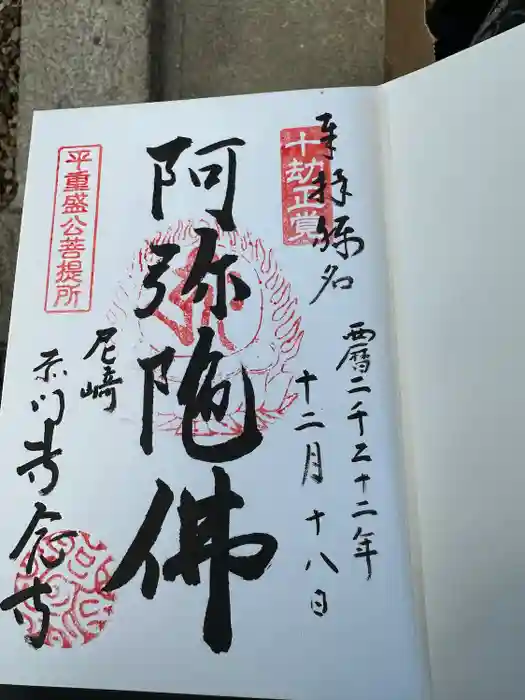 十劫正覚
奉拝
西暦二千二十二年
十二月十八日
阿弥陀佛
尼崎
念寺
平重盛公菩提所